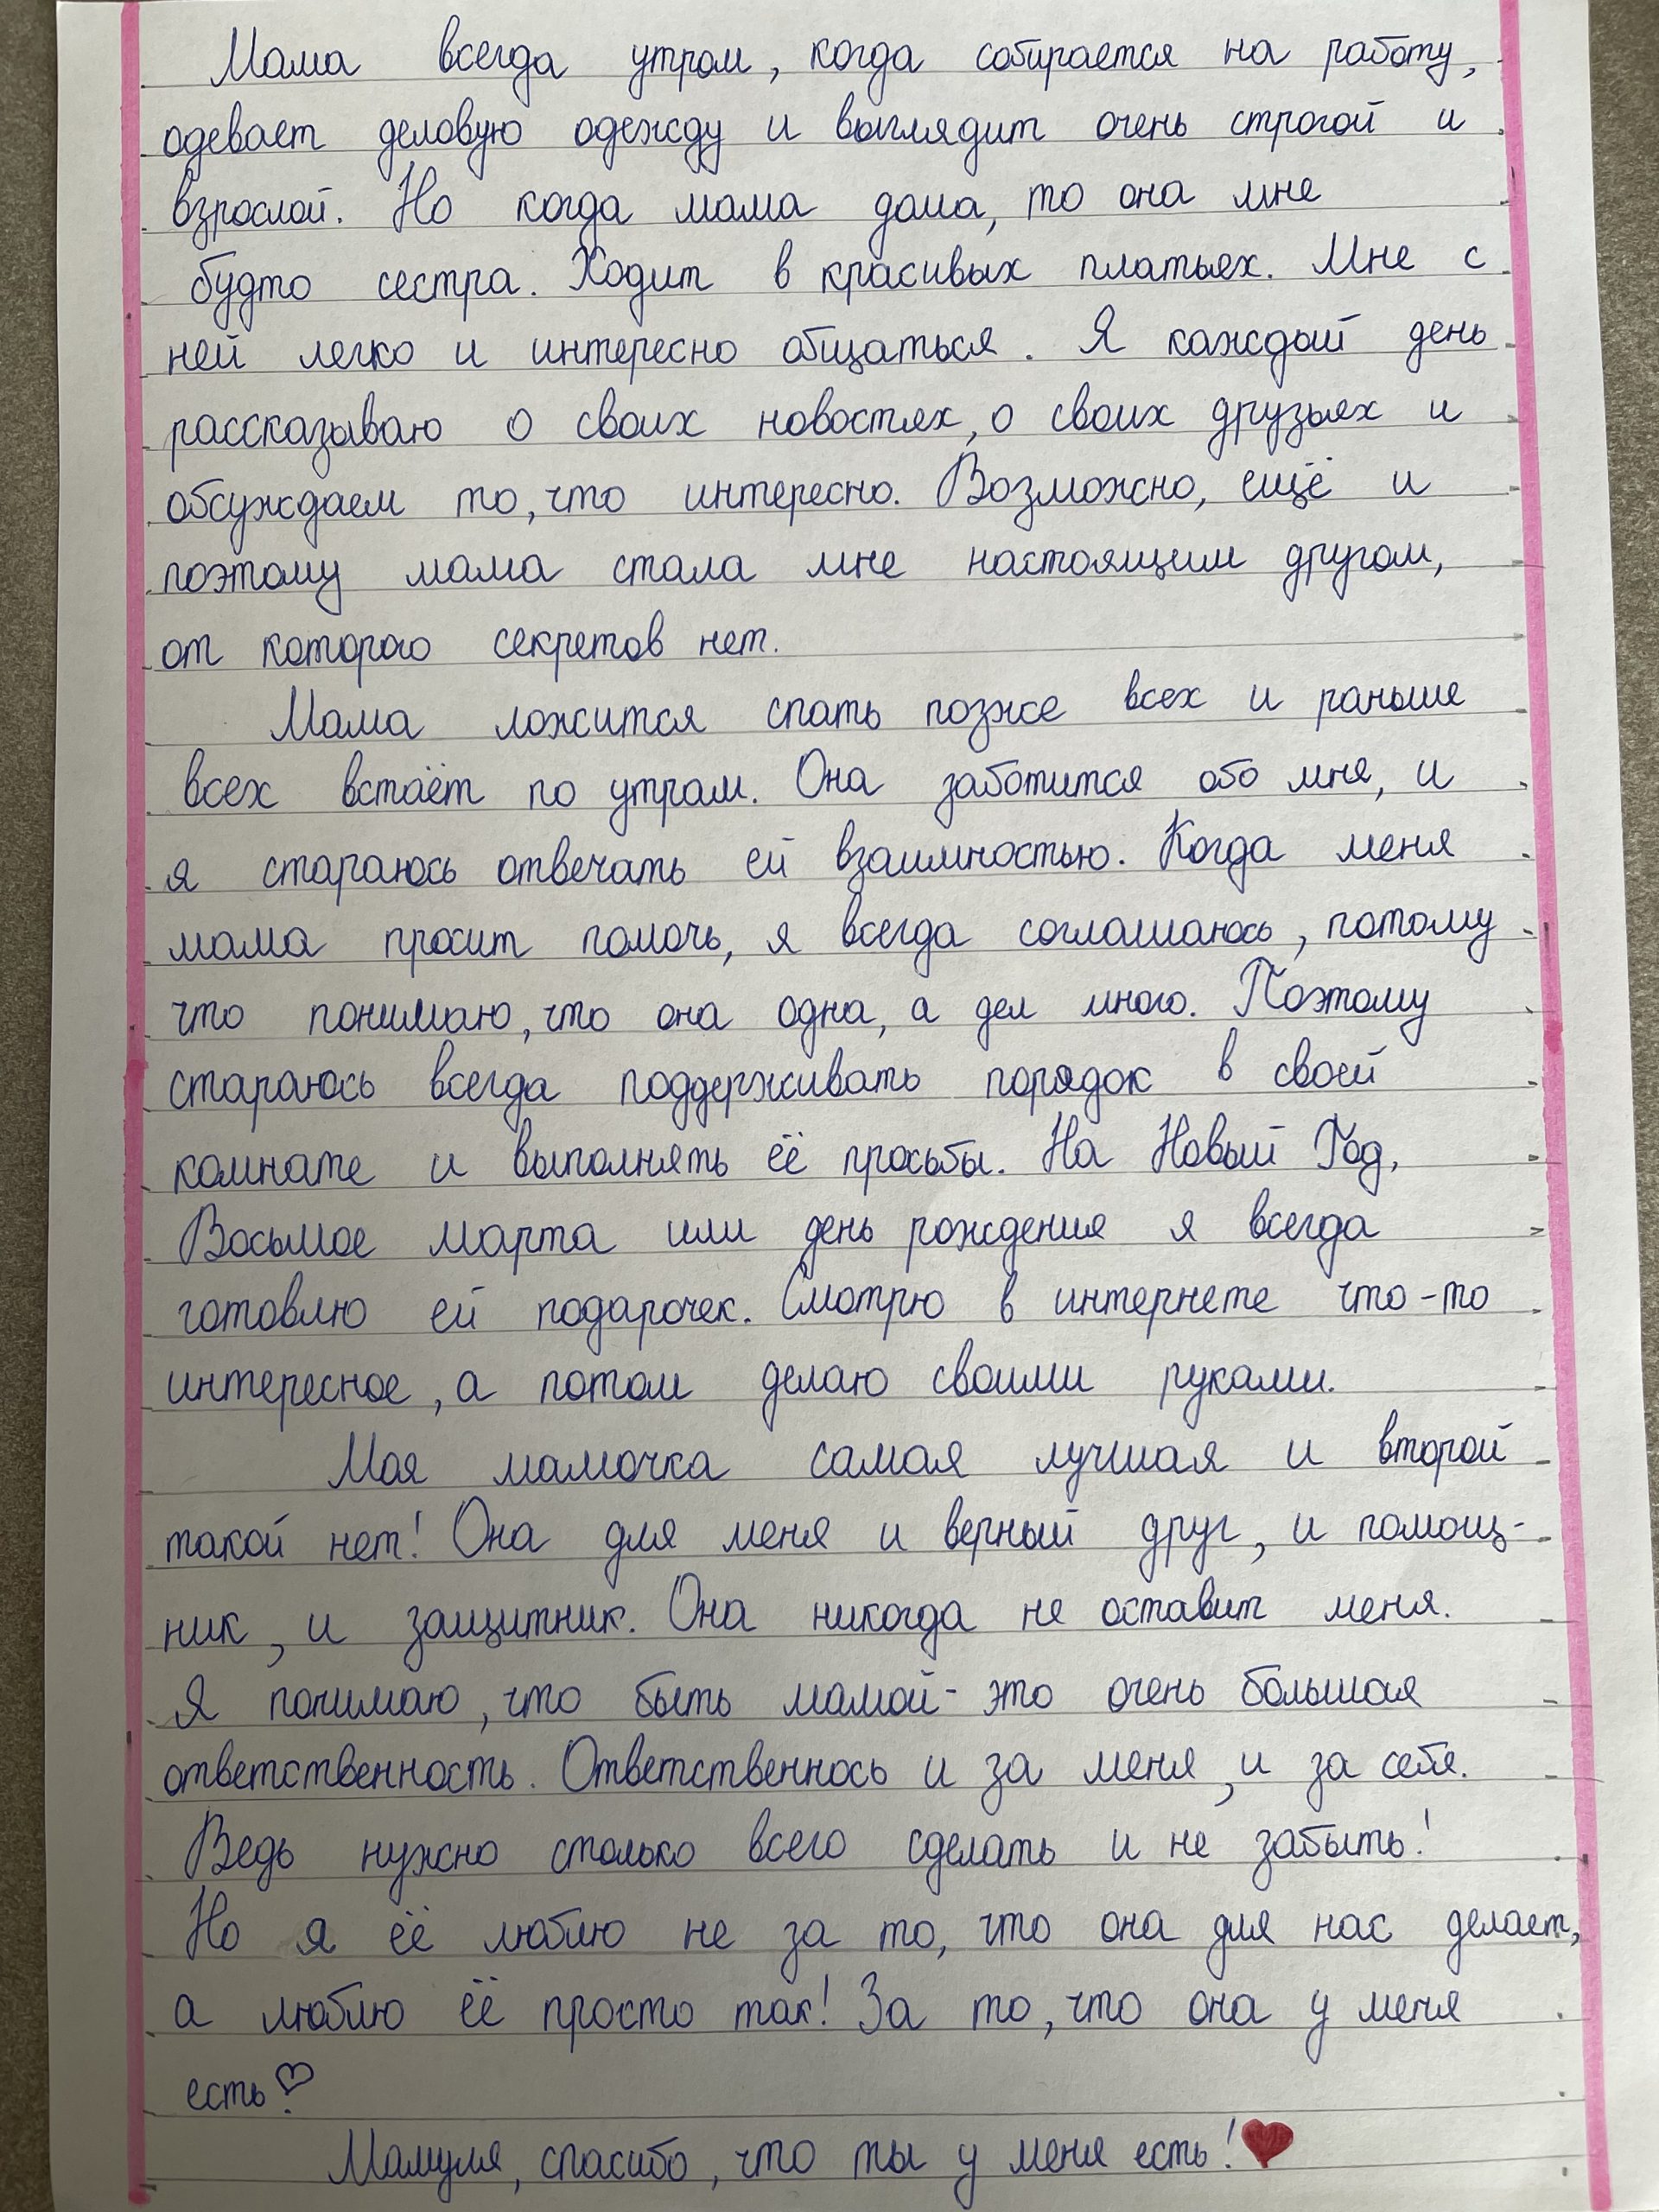 Мама всегда утром, когда собирается на работу,
одевает деловую одежду и выглядит очень строгой и
взрослой. Но когда мама дома, то она мне
будто сестра. Ходит в красивых платьях. Мне с
ней легко и интересно общаться. Я каждый день
рассказываю о своих новостях, о своих друзьях и
обсуждаем то, что интересно. Возможно, ещё и
поэтому мама стала мне настоящим другом,
от которого секретов нет.
Мама ложится спать позже всех и раньше
всех встаёт по утрам. Она заботится обо мня, и
я стараюсь отвечать ей взаимностью. Когда меня
мама просит помочь, я всегда соглашаюсь, потому
что понимаю, что она одна, а дел много. Поэтому
стараюсь всегда поддерживать порядок в своей
комнате и выполнять её просьбы. На Новый Год,
Восьмое марта или день рождения я всегда
готовлю ей подарочек. Смотрю в интернете что-то
интересное, а потом делаю своими руками.
Моя мамочка самая лучшая и второй
такой нет! Она для меня и верный друг, и помощ-
ник, и защитник. Она никогда не оставит меня.
Я понимаю, что быть мамой - это очень большая
ответственность. Ответственнось и за меня, и за себя.
Ведь нужно столько всего сделать и не забыть!
Но я её люблю не за то, что она для нас делает,
а люблю её просто так! За то, что она у меня
есть♡
Мамуля, спасибо, что ты у меня есть!❤